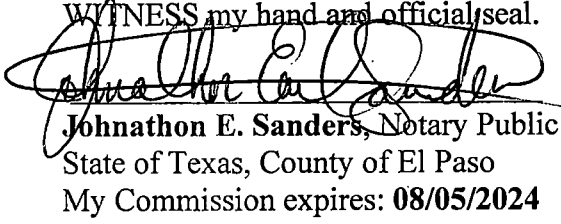 WITNESS my hand and official seal.
Johnathon Earl Sanders
Johnathon E. Sanders, Notary Public
State of Texas, County of El Paso
My Commission expires: 08/05/2024